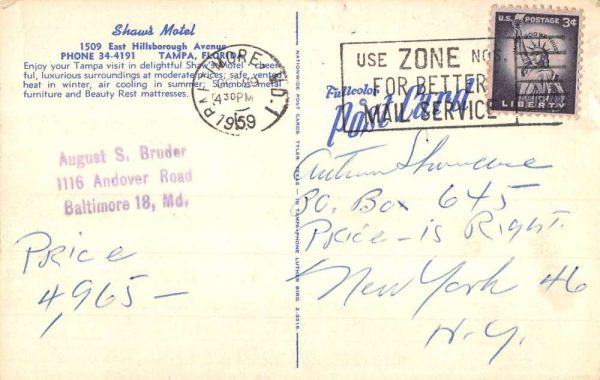 Shaw's Motel
1509 East Hillsborough Avenue
PHONE 34-4191 TAMPA, FLORIDA
Enjoy your Tampa visit in delightful Shaw's Motel — cheerful, luxurious surroundings at moderate prices; safe, vented
heat in winter, air cooling in summer; Simmons metal
furniture and Beauty Rest mattresses.
BALTIMORE, MD. 1
430PM
1959
USE ZONE NOS.
FOR BETTER
MAIL SERVICE
U.S. POSTAGE 3¢
LIBERTY
Fullcolor
Post Card
NATIONWIDE POST CARDS, TYLER, TEXAS — IN TAMPA-PHONE LUTHER BIRD 2-3216
August S. Bruder
1116 Andover Road
Baltimore 18, Md.
Price
4,965 —
Autumn Showcase
P.O. Box 645
Price - is Right.
New York 46
N.Y.